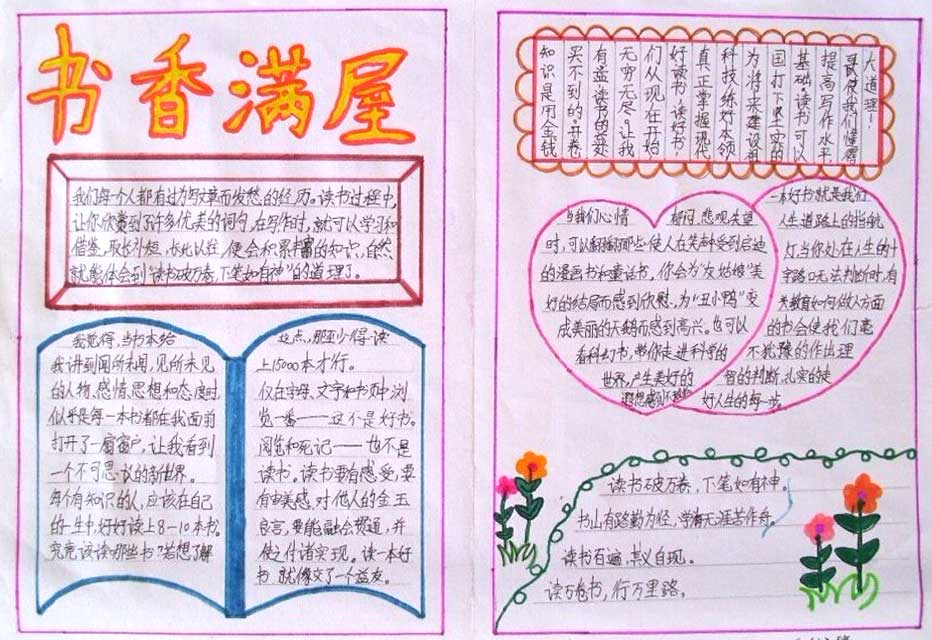 书香满屋
我们每一个人都有过为写文章而发愁的经历。读书过程中,
让你欣赏到许多优美的词句,在写作时,就可以学习和
借鉴,取长补短,长此以往,便会积累丰富的知识,自然
就能体会到“读书破万卷,下笔如有神”的道理了。
我觉得,当书本给
我讲到闻所未闻,见所未见
的人物、感情、思想和态度时,
似乎是每一本书都在我面前
打开了一扇窗户,让我看到
一个不可思议的新世界。
每个有知识的人,应该在自己
的一生中,好好读上8-10本书。
究竟该读哪些书?若想了解
这点,那至少得读
上15000本才行。
仅在字母、文字和书页中浏
览一番——这不是好书。
阅览和死记——也不是
读书。读书要有感受,要
有审美感,对他人的金玉
良言,要能融会贯通,并
使之付诸实现。读一本好
书 就像交了一个益友。
知识是用金钱
买不到的。开卷
有益,读书的获获
无穷无尽。让我
们从现在开始
好读书,读好书!
真正掌握现代
科技,练好本领
为将来建设祖
国打下坚实的
基础。读书可以
提高写作水平,
还能使我们懂得
大道理!
当我们心情 郁闷、悲观失望
时,可以翻翻那些使人在笑声中受到启迪
的漫画书和童话书。你会为“灰姑娘”美
好的结局而感到欣慰、为“丑小鸭”变
成美丽的天鹅而感到高兴。也可以
看科幻书,带你走进科学的
世界,产生美好的
遐想
一本好书就是我们
人生道路上的指航
灯,当你处在人生的十
字路口无法判断时,有
关教育如何做人方面
的书会使我们毫
不犹豫的作出理
智的判断,扎实的走
好人生的每一步。
读书破万卷,下笔如有神。
书山有路勤为径,学海无涯苦作舟。
读书百遍,其义自现。
读万卷书,行万里路。